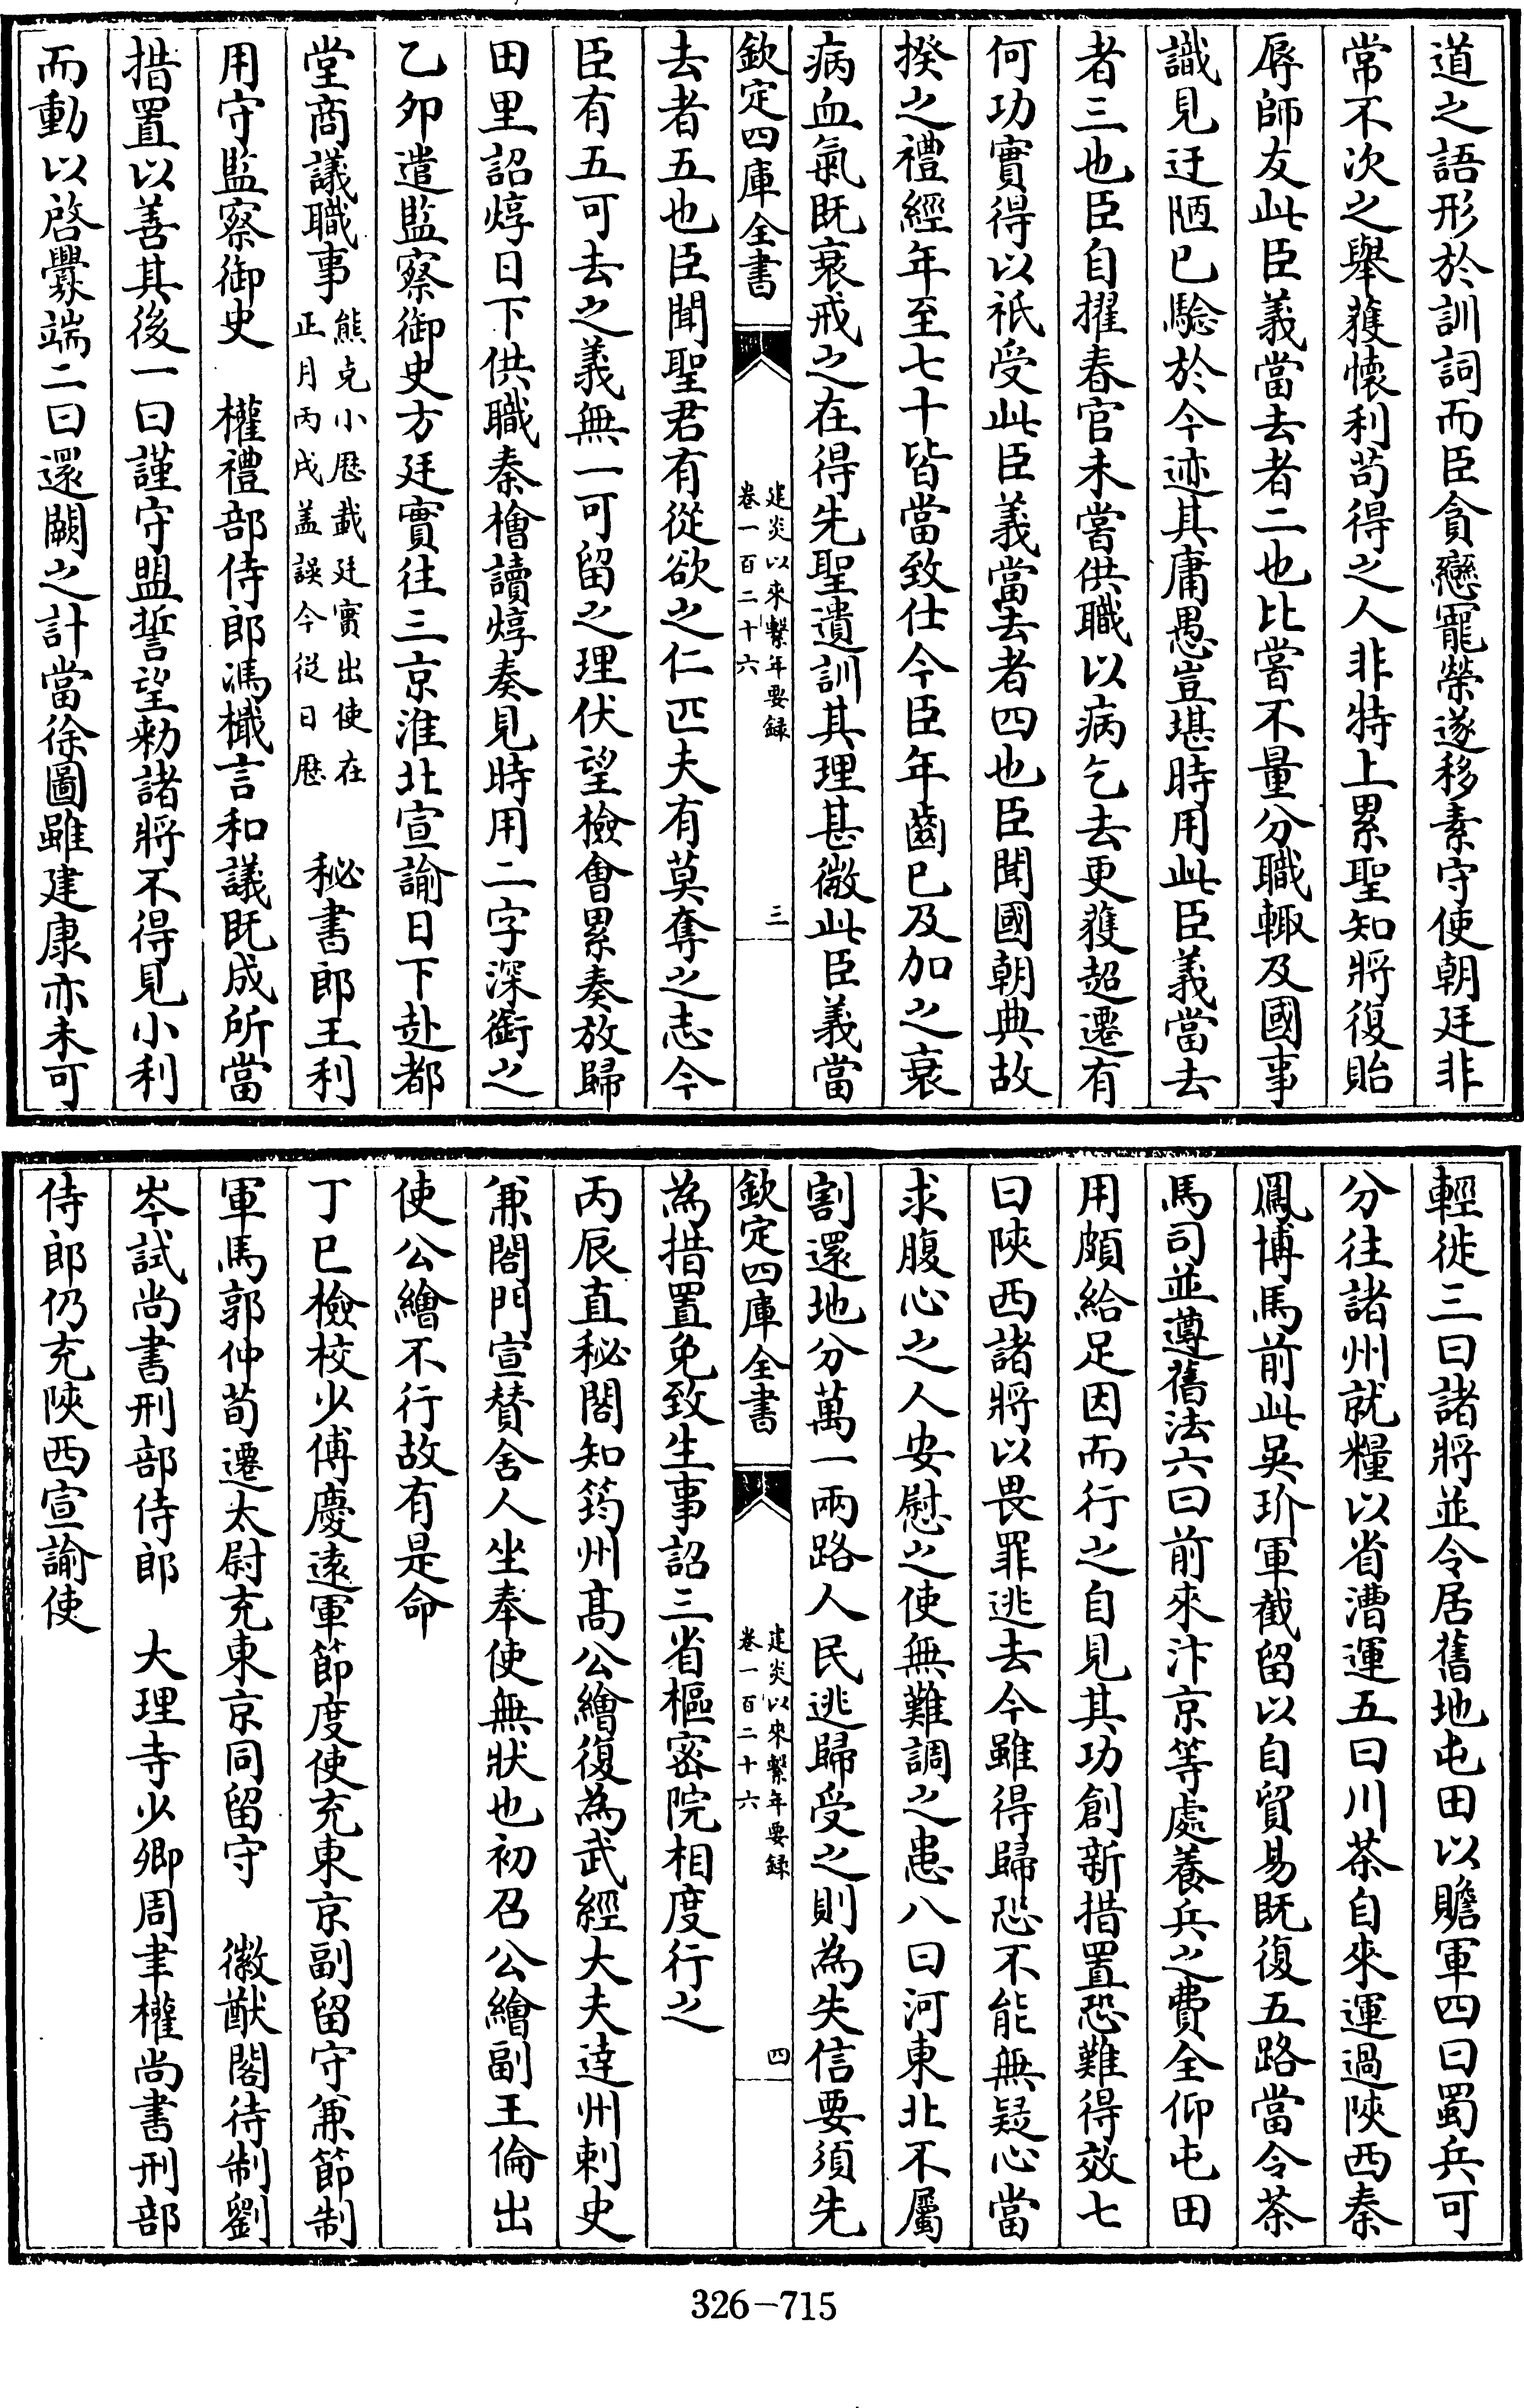 道之語形於訓詞而臣貪戀寵榮遂移素守使朝廷非
常不次之舉獲懷利苟得之人非特上累聖知將復貽
辱師友此臣義當去者二也比嘗不量分職輙及國事
識見迂陋已驗於今迹其庸愚豈堪時用此臣義當去
者三也臣自擢春官未嘗供職以病乞去更獲超遷有
何功實得以祇受此臣義當去者四也臣聞國朝典故
揆之禮經年至七十皆當致仕今臣年齒已及加之衰
病血氣既衰戒之在得先聖遺訓其理甚微此臣義當
欽定四庫全書
建炎以來繫年要録
卷一百二十六
三
去者五也臣聞聖君有從欲之仁匹夫有莫奪之志今
臣有五可去之義無一可留之理伏望檢會累奏放歸
田里詔焞日下供職秦檜讀焞奏見時用二字深銜之
乙卯遣監察御史方廷實往三京淮北宣諭日下赴都
堂商議職事熊克小厯載廷實出使在正月丙戌盖誤今從日厯 秘書郎王利
用守監察御史 權禮部侍郎馮檝言和議既成所當
措置以善其後一曰謹守盟誓望勅諸將不得見小利
而動以啓釁端二曰還闕之計當徐圖雖建康亦未可
輕徙三曰諸將並令居舊地屯田以贍軍四曰蜀兵可
分往諸州就糧以省漕運五曰川茶自來運過陜西秦
鳳博馬前此吳玠軍截留以自貿易既復五路當令茶
馬司並遵舊法六曰前來汴京等處養兵之費全仰屯田
用頗給足因而行之自見其功創新措置恐難得效七
曰陜西諸將以畏罪逃去今雖得歸恐不能無疑心當
求腹心之人安慰之使無難調之患八曰河東北不屬
割還地分萬一兩路人民逃歸受之則為失信要須先
欽定四庫全書
建炎以來繫年要録
卷一百二十六
四
為措置免致生事詔三省樞密院相度行之
丙辰直秘閣知筠州高公繪復為武經大夫達州刺史
兼閤門宣贊舍人坐奉使無狀也初召公繪副王倫出
使公繪不行故有是命
丁巳檢校少傅慶遠軍節度使充東京副留守兼節制
軍馬郭仲荀遷太尉充東京同留守 徽猷閣待制劉
岑試尚書刑部侍郎 大理寺少卿周聿權尚書刑部
侍郎仍充陜西宣諭使
326-715